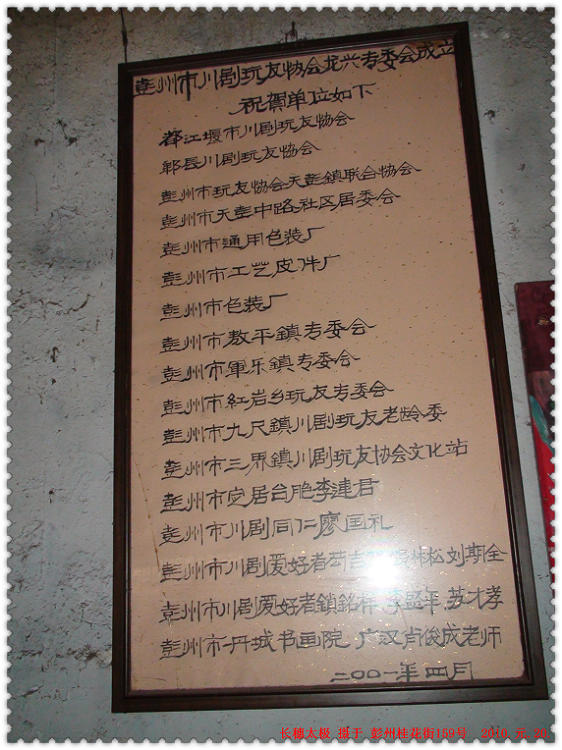 彭州市川剧玩友协会龙兴专委会成立
祝贺单位如下
都江堰市川剧玩友协会
郫县川剧玩友协会
彭州市玩友协会天彭鎮联合协会
彭州市天彭中路社区居委会
彭州市通用包装厂
彭州市工艺皮件厂
彭州市包装厂
彭州市敖平鎮专委会
彭州市軍乐鎮专委会
彭州市紅岩乡玩友专委会
彭州市九尺鎮川剧玩友老龄委
彭州市三界鎮川剧玩友协会文化站
彭州市定居台胞李建君
彭州市川剧同仁廖国礼
彭州市川剧爱好者 林松刘期全
彭州市川剧爱好者鎖銘 李盛年 苏才孝
彭州市丹城书画院 广汉肖俊成老师
二00一年四月
长穗太极 摄于 彭州桂花街152号 2010.